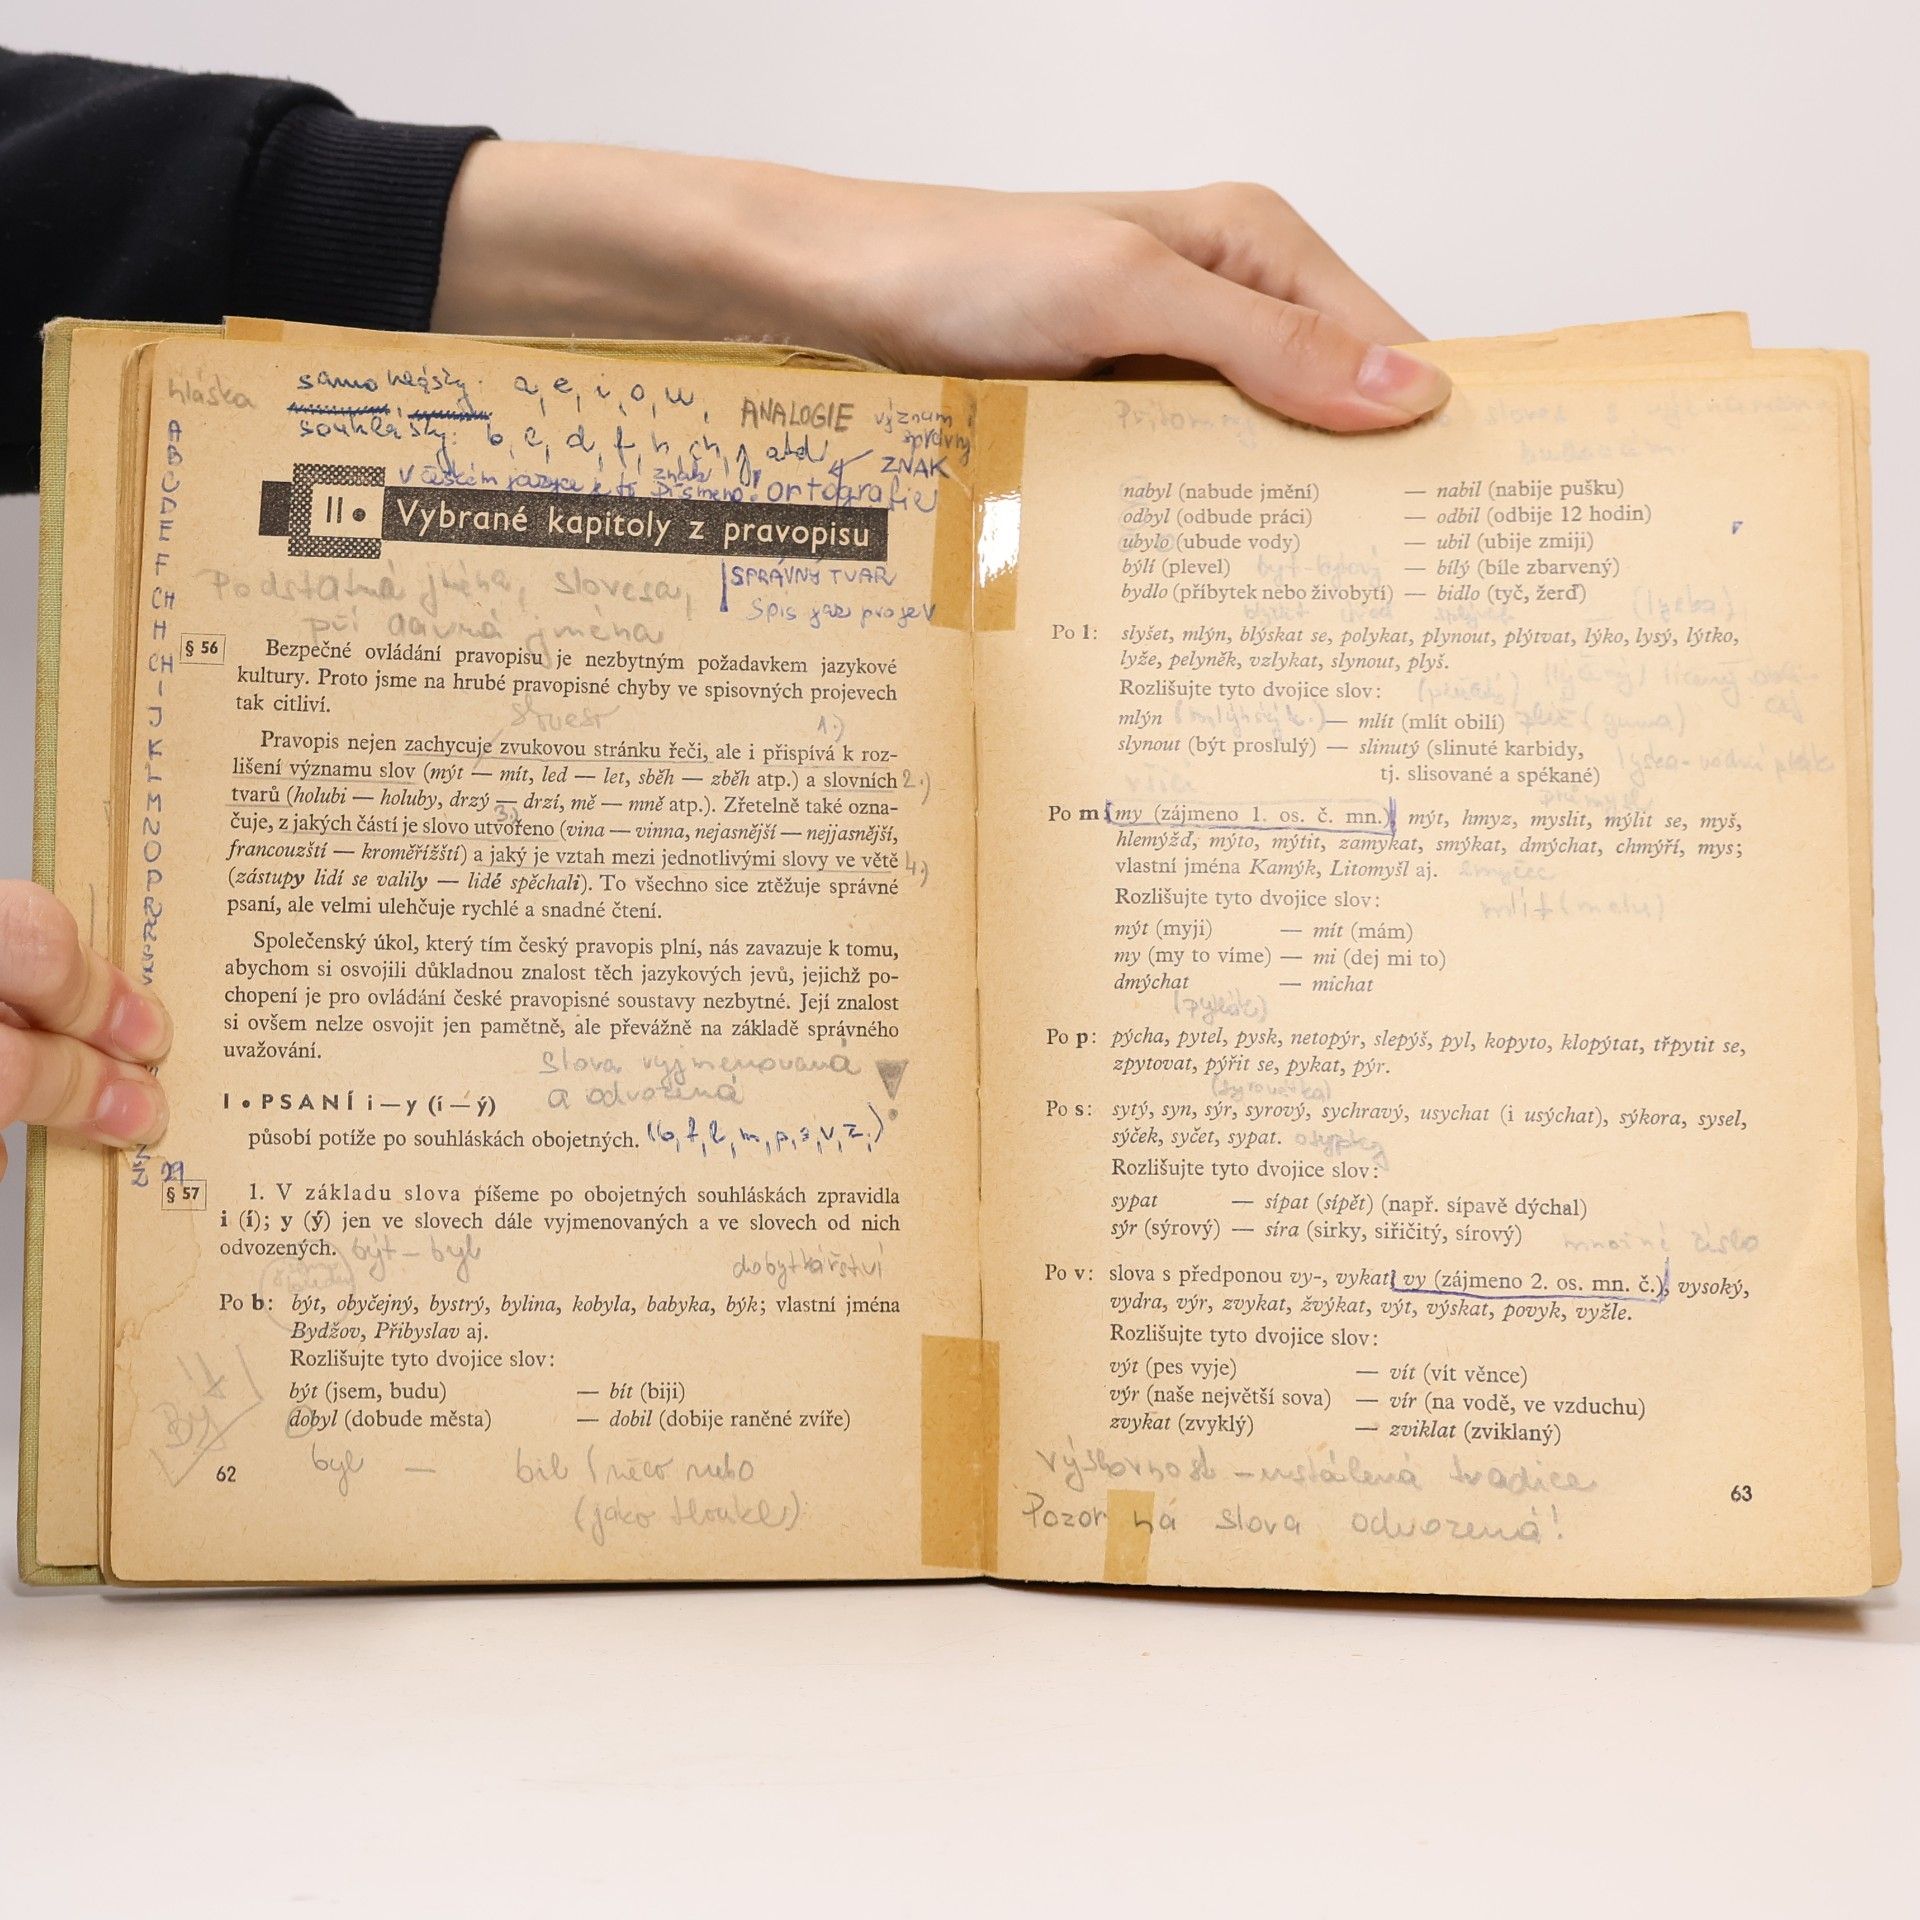 hláska
samohlásky: a, e, i, o, u,
souhlásky: b, c, d, f, h, ch, j, atd
ANALOGIE
význam
správný
ZNAK
V českém jazyce je to znak písmeno!
ortografie
A
B
C
D
E
F
CH
H
CH
I
J
K
L
M
N
O
P
R
Ř
S
Z
Ž
II. Vybrané kapitoly z pravopisu
SPRÁVNÝ TVAR
Podstatná jména, slovesa,
přídavná jména
§ 56
Bezpečné ovládání pravopisu je nezbytným požadavkem jazykové
kultury. Proto jsme na hrubé pravopisné chyby ve spisovných projevech
tak citliví.
1.)
Pravopis nejen zachycuje zvukovou stránku řeči, ale i přispívá k roz-
lišení významu slov (mýt — mít, led — let, sběh — zběh atp.) a slovních 2.)
tvarů (holubi — holuby, drzý — drzí, mě — mně atp.). Zřetelně také ozna-
3.)
čuje, z jakých částí je slovo utvořeno (vina — vinna, nejasnější — nejjasnější,
francouzští — kroměřížští) a jaký je vztah mezi jednotlivými slovy ve větě 4.)
(zástupy lidí se valily — lidé spěchali). To všechno sice ztěžuje správné
psaní, ale velmi ulehčuje rychlé a snadné čtení.
Společenský úkol, který tím český pravopis plní, nás zavazuje k tomu,
abychom si osvojili důkladnou znalost těch jazykových jevů, jejichž po-
chopení je pro ovládání české pravopisné soustavy nezbytné. Její znalost
si ovšem nelze osvojit jen pamětně, ale převážně na základě správného
uvažování.
slova vyjmenovaná
a odvozená
1 • PSANÍ i — y (í — ý)
působí potíže po souhláskách obojetných. (b, f, l, m, p, s, v, z,)
§ 57
1. V základu slova píšeme po obojetných souhláskách zpravidla
i (í); y (ý) jen ve slovech dále vyjmenovaných a ve slovech od nich
odvozených. být — byl
dobytkářství
Po b: být, obyčejný, bystrý, bylina, kobyla, babyka, býk; vlastní jména
Bydžov, Přibyslav aj.
Rozlišujte tyto dvojice slov:
být (jsem, budu) — bít (biji)
dobyl (dobude města) — dobil (dobije raněné zvíře)
byl — bil (něco nebo
62
nabyl (nabude jmění) — nabil (nabije pušku)
odbyl (odbude práci) — odbil (odbije 12 hodin)
ubylo (ubude vody) — ubil (ubije zmiji)
býlí (plevel) — bílý (bíle zbarvený)
bydlo (příbytek nebo živobytí) — bidlo (tyč, žerď)
Po l: slyšet, mlýn, blýskat se, polykat, plynout, plýtvat, lýko, lysý, lýtko,
lyže, pelyněk, vzlykat, slynout, plyš.
Rozlišujte tyto dvojice slov:
mlýn — mlít (mlít obilí)
slynout (být proslulý) — slinutý (slinuté karbidy,
tj. slisované a spékané)
Po m: my (zájmeno 1. os. č. mn.), mýt, hmyz, myslit, mýlit se, myš,
hlemýžď, mýto, mýtit, zamykat, smýkat, dmýchat, chmýří, mys;
vlastní jména Kamýk, Litomyšl aj. smyčec
Rozlišujte tyto dvojice slov:
mlít (melu)
mýt (myji) — mít (mám)
my (my to víme) — mi (dej mi to)
dmýchat — míchat
Po p: pýcha, pytel, pysk, netopýr, slepýš, pyl, kopyto, klopýtat, třpytit se,
zpytovat, pýřit se, pykat, pýr.
(syrovátka)
Po s: sytý, syn, sýr, syrový, sychravý, usychat (i usýchat), sýkora, sysel,
sýček, syčet, sypat. osypky
Rozlišujte tyto dvojice slov:
sypat — sípat (sípět) (např. sípavě dýchal)
sýr (sýrový) — síra (sirky, siřičitý, sírový)
množné číslo
Po v: slova s předponou vy-, vykat, vy (zájmeno 2. os. mn. č.), vysoký,
vydra, výr, zvykat, žvýkat, výt, výskat, povyk, vyžle.
Rozlišujte tyto dvojice slov:
výt (pes vyje) — vít (vít věnce)
výr (naše největší sova) — vír (na vodě, ve vzduchu)
zvykat (zvyklý) — zviklat (zviklaný)
ustálená tradice
Pozor na slova odvozená!
63